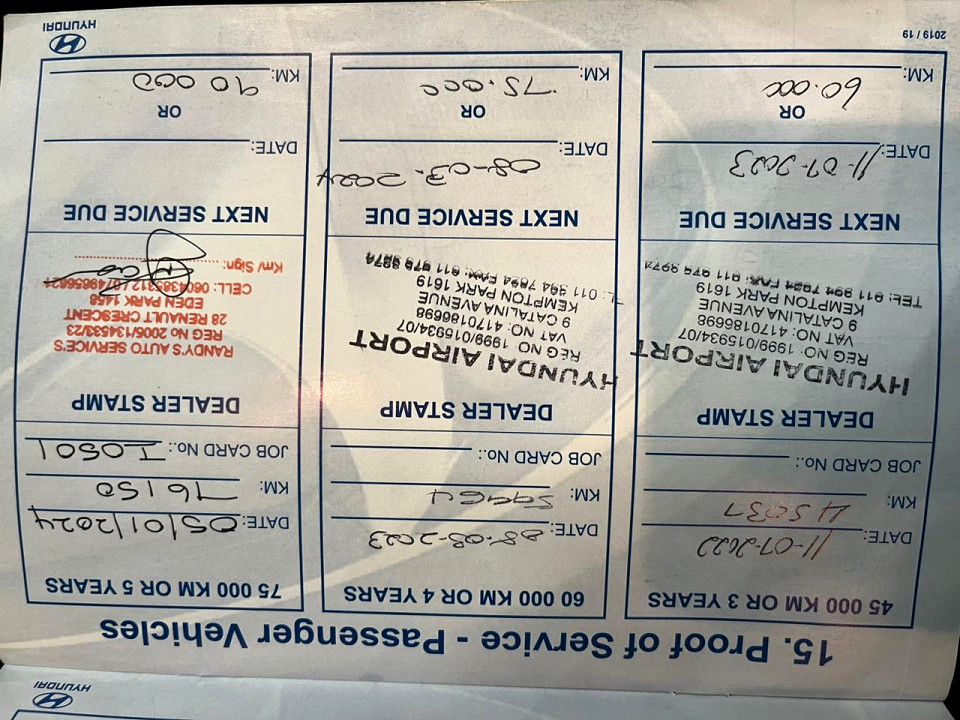 HYUNDAI
15. Proof of Service - Passenger Vehicles
45 000 KM OR 3 YEARS
DATE: 11-07-2022
KM: 45037
JOB CARD No.:
DEALER STAMP
HYUNDAI AIRPORT
REG NO: 1999/015934/07
VAT NO: 4170186698
9 CATALINA AVENUE
KEMPTON PARK 1619
TEL: 011 394 7824 FAX: 011 979 3974
NEXT SERVICE DUE
DATE: 11-07-2023
OR
KM: 60.000
60 000 KM OR 4 YEARS
DATE: 08-08-2023
KM: 59964
JOB CARD No.:
DEALER STAMP
HYUNDAI AIRPORT
REG NO: 1999/015934/07
VAT NO: 4170186698
9 CATALINA AVENUE
KEMPTON PARK 1619
011 394 7824 FAX: 011 979 3974
NEXT SERVICE DUE
DATE: 08-03-2024
OR
KM: 75.000
75 000 KM OR 5 YEARS
DATE: 05/01/2024
KM: 76150
JOB CARD No.: IOS01
DEALER STAMP
RANDY'S AUTO SERVICE'S
REG No 2005/134533/23
28 RENAULT CRESCENT
EDEN PARK 1456
CELL:
Km/ Sign:
NEXT SERVICE DUE
DATE:
OR
KM: 90 000
2019 / 19
HYUNDAI